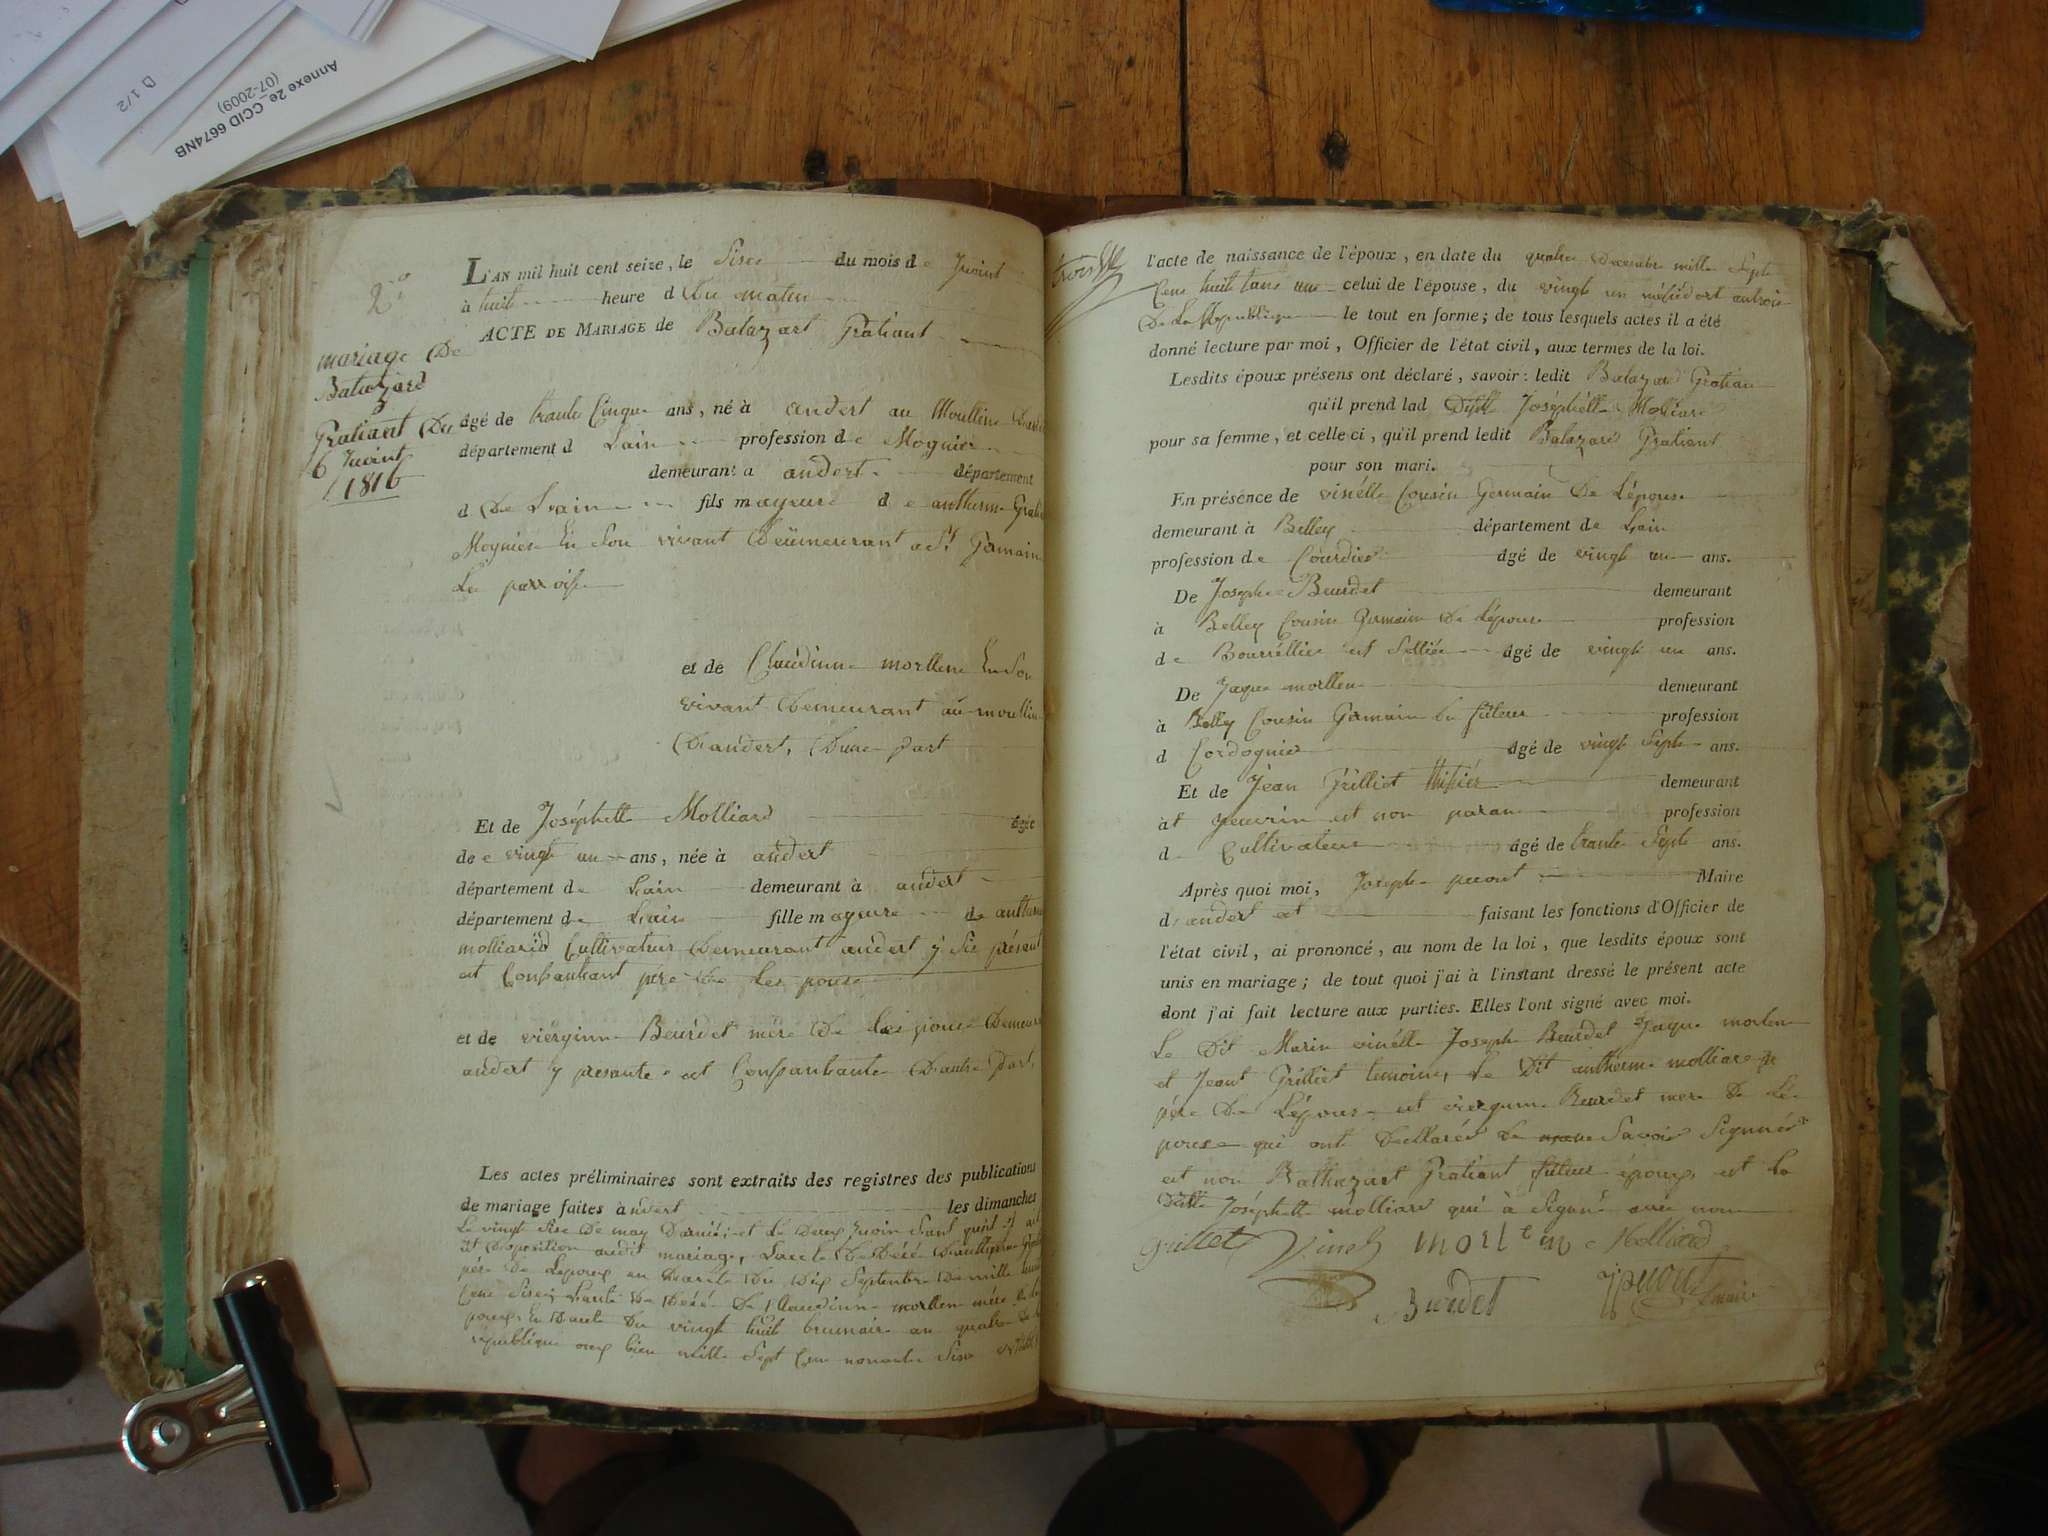 Annexe 2e_CCID 6674NB
(07-2009)
D 1/2
2°
mariage De
Batazard
Gratiant Du
6 Juoint
1816
L'AN mil huit cent seize, le Sisce du mois de Juoint
à huit heure d Du matin
ACTE DE MARIAGE de Balazart Gratiant
âgé de trante Cinque ans, né à andert au Moullin
département d Lain profession de Mognier
demeurant a andert département
d De Lain fils mayeure de antherme
Mognier En Son vivant Deumeurant a St Germain
La parroisse
et de Claudinne morllene En Son
vivant Demeurant au moullin
Dandert, Dune part
Et de Joséphette Molliard âgée
de vingt un ans, née à andert
département de Lain demeurant à andert
département de Lain fille mayeure de
molliard Cultivateur Demeurant andert y Sis présent
et Consantant père De Les pouse
et de vierginne Beurdet mère De Les pouse
andert y presante et Consantante Dautre part,
Les actes préliminaires sont extraits des registres des publications
de mariage faites à andert les dimanches
Le vingt Sise De may Darnié, et Le Deux Juoin Sant quil y
oposition audit mariage,
père De Lepoux en Datte Du Dix Septembre De mille
Cent Sise De Claudinne morllene mère
poux En Datte Du vingt huit brumaire an quatre
république oux bien mille Sept Cent nonante Sise
troisième
l'acte de naissance de l'époux, en date du quatre Decembre mille Sept
Cens huit tans une celui de l'épouse, du vingt un méssidort antrois
De La Republique le tout en forme; de tous lesquels actes il a été
donné lecture par moi, Officier de l'état civil, aux termes de la loi.
Lesdits époux présens ont déclaré, savoir: ledit Balazard Gratian
qu'il prend lad Ditte Joséphette Molliard
pour sa femme, et celle ci, qu'il prend ledit Balazard Gratient
pour son mari.
En présence de vinélle Cousin Germain De Lépouse
demeurant à Belley département de Lain
profession de Courdier âgé de vingt un ans.
De Joseph Beurdet demeurant
à Belley Cousin Germain De Lépouse profession
de Bourréllier et Sellier âgé de vingt un ans.
De Jaque morllene demeurant
à Belley Cousin Germain Du futeur profession
d Cordognier âgé de vingt Sept ans.
Et de Jean Grilliet demeurant
à peuvrin et non paran profession
de Cultivateur âgé de trante Sept ans.
Après quoi moi, Joseph puont Maire
d andert et faisant les fonctions d'Officier de
l'état civil, ai prononcé, au nom de la loi, que lesdits époux sont
unis en mariage; de tout quoi j'ai à l'instant dressé le présent acte
dont j'ai fait lecture aux parties. Elles l'ont signé avec moi.
Le Dit Marin vinélle Joseph Beurdet Jaque morlene
et Jeant Grilliet temoins, Le Dit antherme molliard
père De Lépouse et vierginne Beurdet mere De Lé
pouse qui ont Dellarée De Savoir Signiér
et non Balthazart Gratiant futeur époux et La
Ditte Joséphette molliard qui à Signé avec nous
Grillet Vinel morlen Molliard
Burdet Jpuont maire